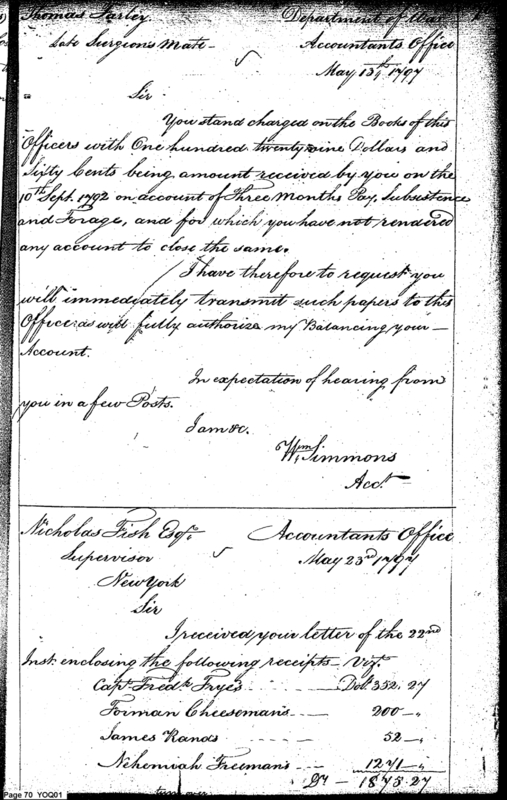 Thomas Farley Department of War
Late Surgeons Mate Accountants Office
May 15th 1797
Sir
You stand charged on the Books of this
Officers with One hundred twenty nine Dollars and
Sixty Cents being amount received by you on the
10th Sept. 1792 on account of Three Months Pay, Subsistence
and Forage, and for which you have not rendered
any account to close the same.
I have therefore to request you
will immediately transmit such papers to this
Office as will fully authorize my Balancing your
Account.
In expectation of hearing from
you in a few Posts.
I am &c.
Wm Simmons
Acct.
Nicholas Fish Esqr. Accountants Office
Supervisor May 23rd 1797
New York
Sir
I received your letter of the 22nd
Inst. enclosing the following receipts Vizt.
Capt. Fredk. Frye's Dolls 352.27
Forman Cheeseman's 200 "
James Rands 52 "
Nehemiah Freeman's 1271 "
Ds 1875.27
turn over
Page 70 YOQ01